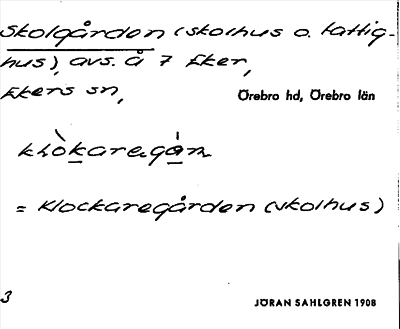 Skolgården (skolhus o. fattig-
hus), avs. å 7 Eker,
Ekers sn,
Örebro hd, Örebro län
klòkaregán
= Klockaregården (skolhus)
3
JÖRAN SAHLGREN 1908